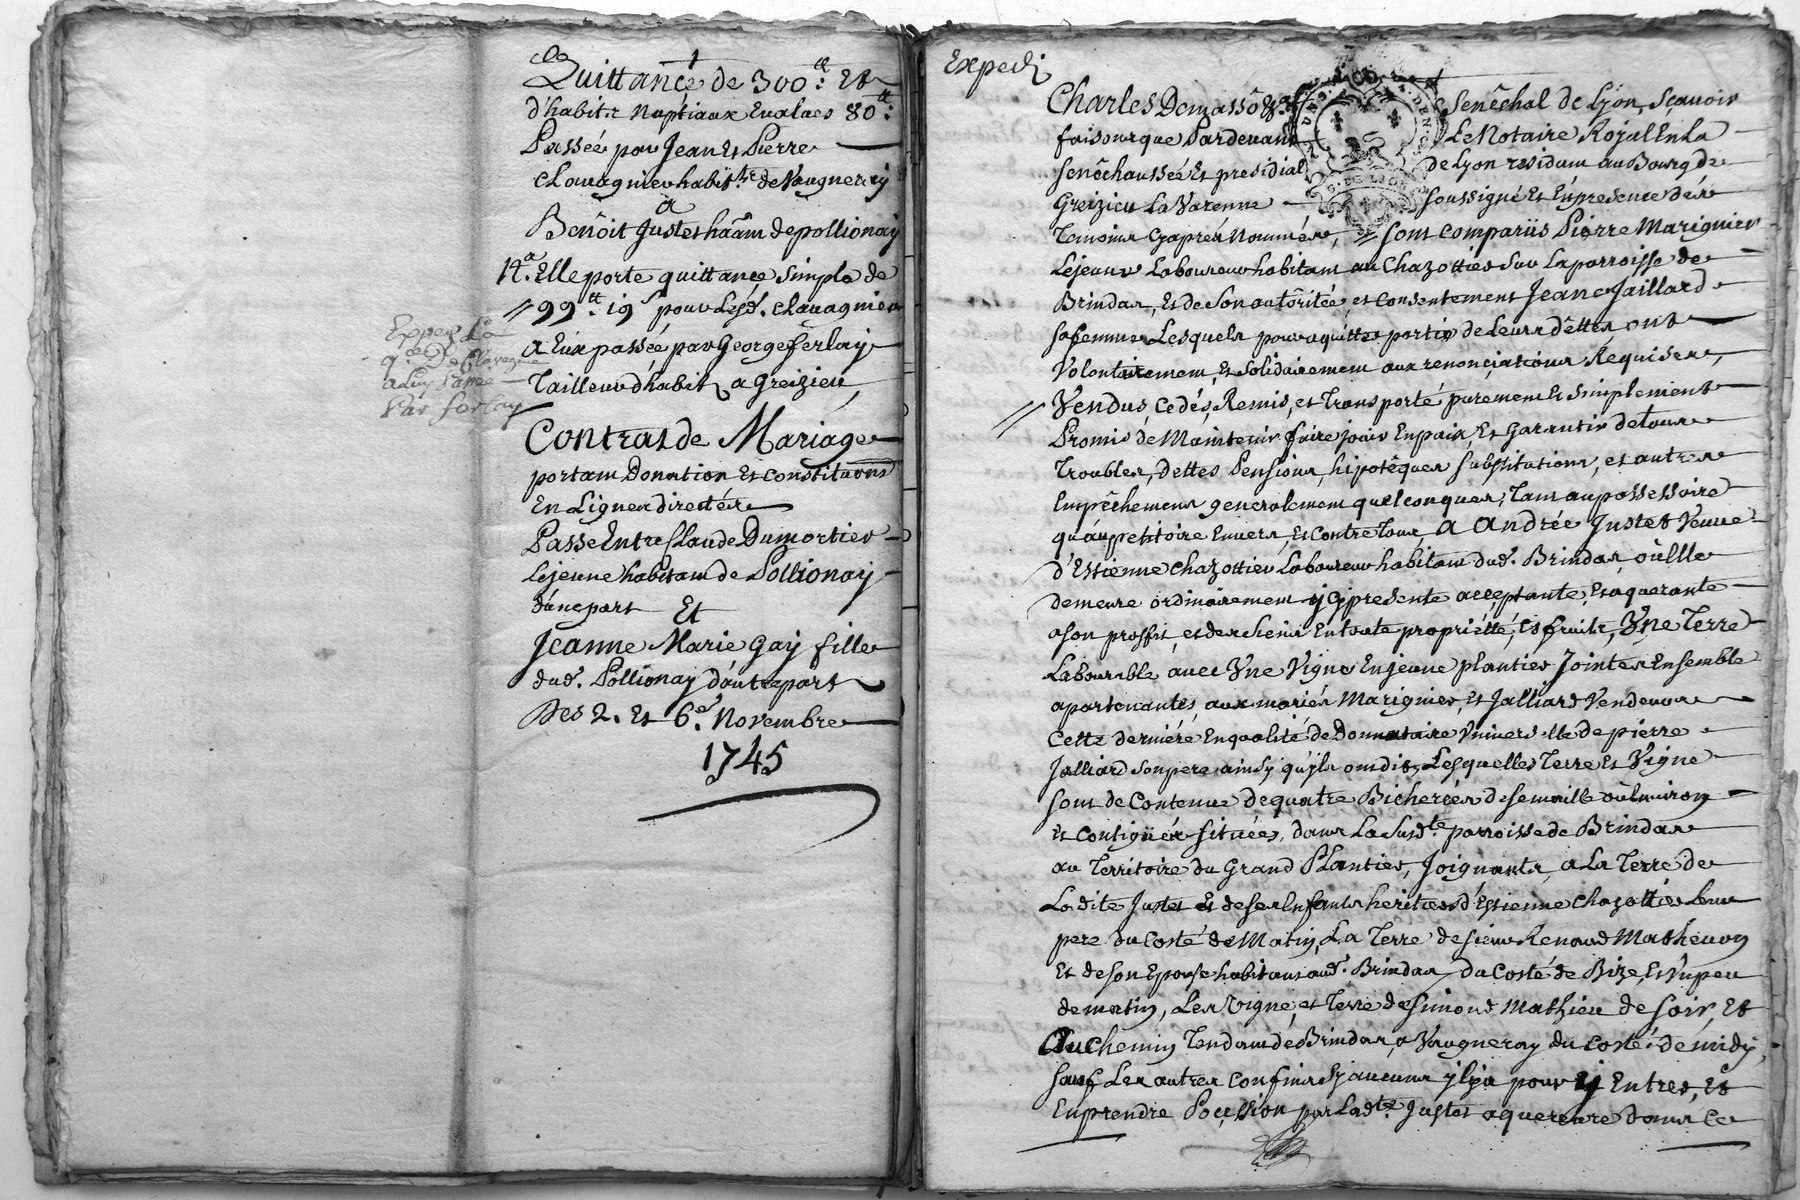 Quittance de 300.tt Et
d'habits Nuptiaux Evalues 80.tt
Passée par Jean Et Pierre
Clavagnier habit.ts de Vaugneray
a
Benoit Justet haant de pollionay
Elle porte quittance simple de
// 99.tt 19 s pour Lesd. Clavagnier
a Eux passée par George ferlay
Tailleur d'habits a Greizieu
Expedi La
q.ce de Clavagnier
a Luy Passée
Par ferlay
Contrat de Mariage
portant Donation Et Constitutions
En Lignes directes
Passe Entre Claude Dumortier
Lejeune habitant de Pollionay
d'une part Et
Jeanne Marie Gay fille
dud. Pollionay d'autre part
Des 2. Et 6.e Novembre
1745
Expedi
Charles Demasso &.a Senêchal de Lyon, Scavoir
faisons que Pardevant Le Notaire Royal En La
Senêchaussée Et presidial de Lyon residant au Bourg de
Greizieu La Varenne soussigné Et En presence des
Temoins Cyaprés Nommés, // sont comparüs Pierre Marignier
Lejeune Laboureur habitant au Chazottier sur La parroisse de
Brindas, Et de son autôritée, et Consentement Jeane Jaillard
sa femme Lesquels pour aquitter partie de Leurs dêttes, ont
Volontairement, et solidairement aux renonciations Requises,
// Vendus, Cedés, Remis, et Transporté purement Et simplement
Promis de Maintenir faire jouir En paix, Et Garantir de tous
Troubles, dettes Pensions, hipotêques substitutions, et autres
Empêchemens generalement quelconques, Tant au possessoire
qu'au petitoire Envers, Et Contre Tous, a Andrée Justet Veuve
d'Estienne Chazottier Laboureur habitant dud. Brindas, où Elle
demeure ordinairement ycy presente acceptante, Et aquerante
a son proffit, et des siens En toute proprietté, Et fruits, Vne Terre
Labourable avec Vne Vigne En jeune plantier Jointes Ensemble
apartenantes, aux mariés Marignier, et Jalliard Vendeurs
Cette derniére En qualité de Donnataire Vniverselle de pierre
Jalliard son pere ainsy qu'yls ont dit, Lesquelles Terre Et Vigne
sont de Contenue de quatre Bicherées de semaille où Environ
et Contiguës situées, dans La susd.te parroisse de Brindas
au Territoire du Grand Plantier, Joignants, a La Terre de
Ladite Justet Et de ses Enfants heritiers d'Estienne Chazottier Leur
pere du Costé de Matin, La Terre de sieur Renaud Mathevon
Et de son Epouse habitans aud. Brindas, du Costé de Bize, Et Vn peu
de matin, Les Vigne, et Terre de Simond Mathieu de soir, Et
Au Chemin Tendant de Brindas, a Vaugneray du Costé de midy,
sauf Les autres Confins sy aucuns y Lÿa pour y Entrer, Et
En prendre Poçession par Lad.te Justet aquereure dans Ce